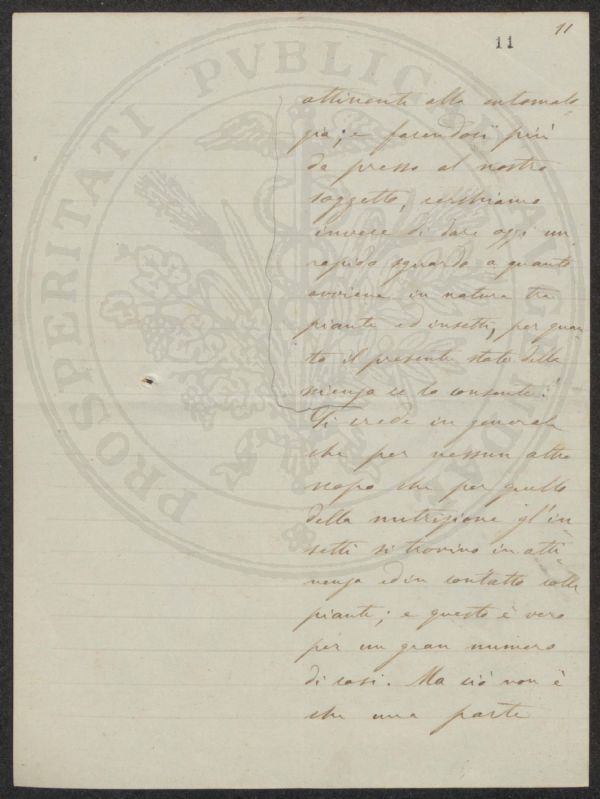 11
11
attinenti alla entomolo
gia; e facendosi più
da presso al nostro
soggetto, cerchiamo
invece di dare oggi un
rapido sguardo a quanto
avviene in natura tra
piante ed insetti, per quan
to il presente stato della
scienza ce lo consente.
Si crede in generale
che per nessun altro
scopo che per quello
della nutrizione gl'in
setti si trovino in atti
nenza ed in contatto colle
piante; e questo è vero
per un gran numero
di casi. Ma ciò non è
che una parte
PROSPERITATI PVBLICAE AVGENDAE